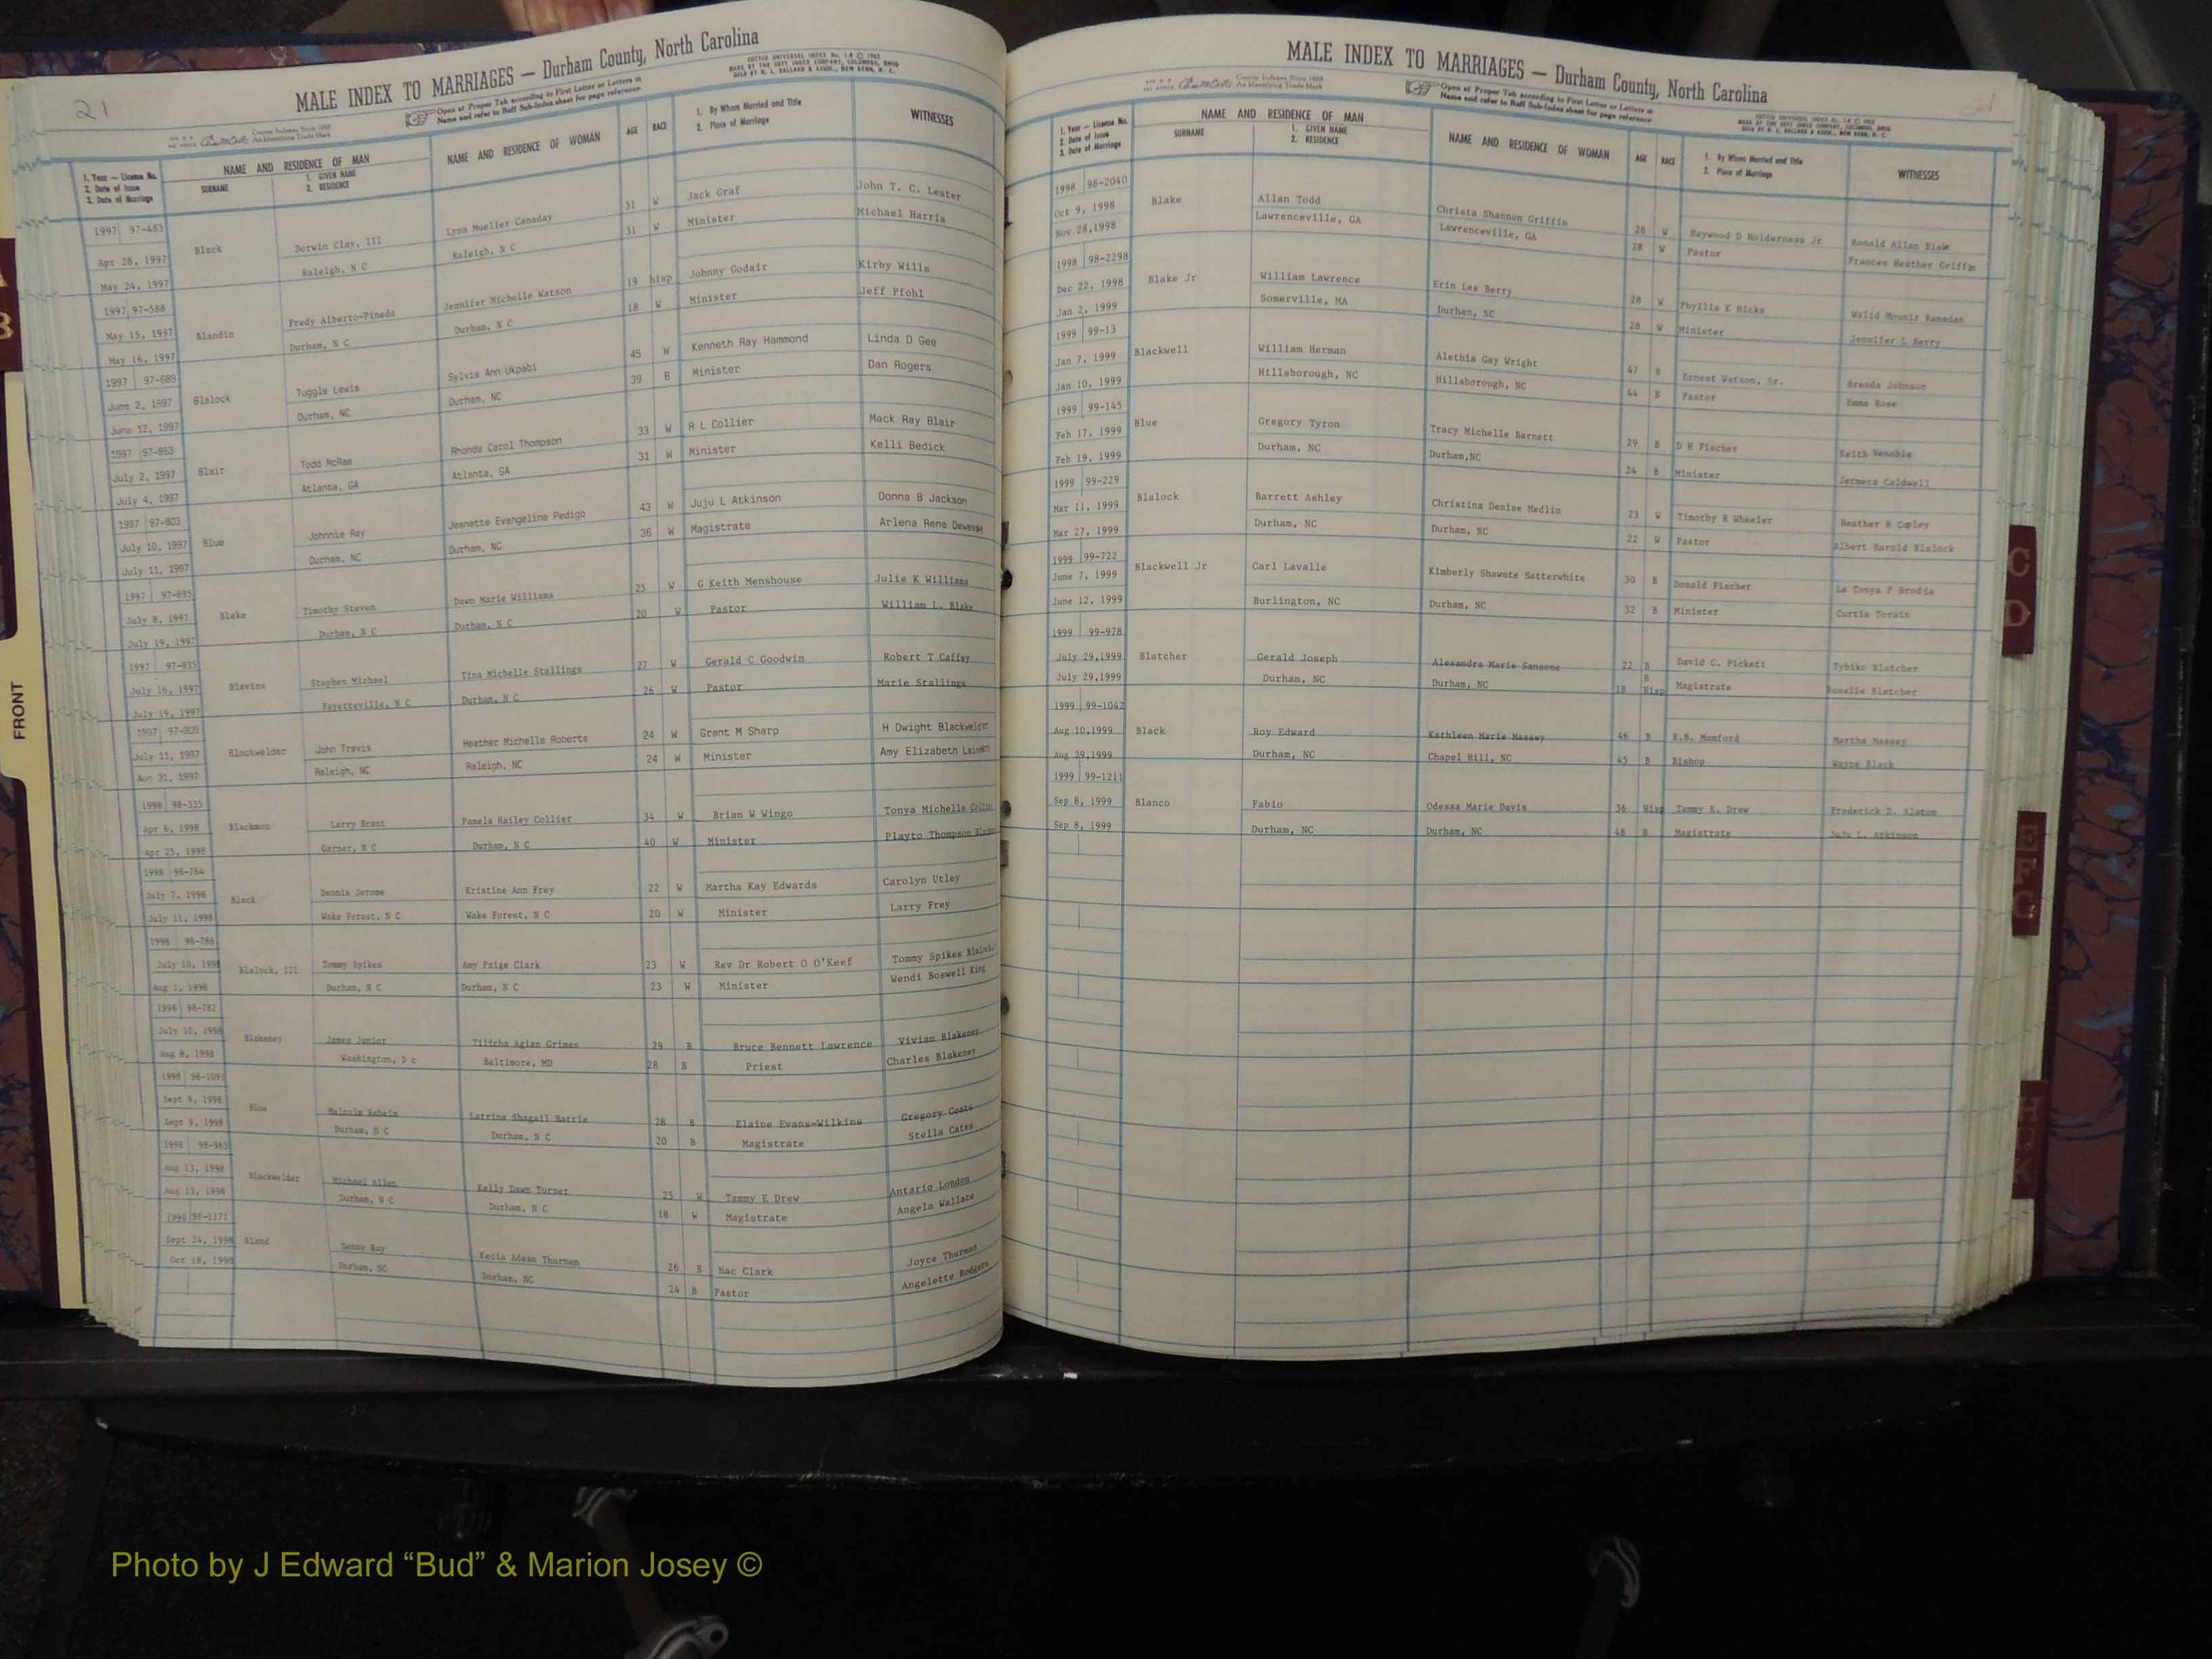 21
MALE INDEX TO MARRIAGES — Durham County, North Carolina
Open at Proper Tab according to First Letter or Letters in
Name and refer to Buff Sub-Index sheet for page reference
COTT'S UNIVERSAL INDEX No. 1-8 © 1962
MADE BY THE COTT INDEX COMPANY, COLUMBUS, OHIO
SOLD BY O. L. BALLARD & ASSOC., NEW BERN, N. C.
County Indexes Since 1888
An Identifying Trade Mark
1. Year — License No.
2. Date of Issue
3. Date of Marriage
NAME AND RESIDENCE OF MAN
SURNAME
1. GIVEN NAME
2. RESIDENCE
NAME AND RESIDENCE OF WOMAN
AGE
RACE
1. By Whom Married and Title
2. Place of Marriage
WITNESSES
1997 97-483
Apr 28, 1997 Black Dorwin Clay, III Lynn Mueller Canaday 31 W Jack Graf John T. C. Lester
May 24, 1997 Raleigh, N C Raleigh, N C 31 W Minister Michael Harris
1997 97-588
May 15, 1997 Blandin Fredy Alberto-Pineda Jennifer Michelle Watson 19 hisp Johnny Godair Kirby Wills
May 16, 1997 Durham, N C Durham, N C 18 W Minister Jeff Pfohl
1997 97-689
June 2, 1997 Blalock Tuggle Lewis Sylvia Ann Ukpabi 45 W Kenneth Ray Hammond Linda D Gee
June 12, 1997 Durham, NC Durham, NC 39 B Minister Dan Rogers
1997 97-863
July 2, 1997 Blair Todd McRae Rhonda Carol Thompson 33 W R L Collier Mack Ray Blair
July 4, 1997 Atlanta, GA Atlanta, GA 31 W Minister Kelli Bedick
1997 97-903
July 10, 1997 Blue Johnnie Ray Jeanette Evangeline Pedigo 43 W Juju L Atkinson Donna B Jackson
July 11, 1997 Durham, NC Durham, NC 36 W Magistrate Arlena Rene Dewesse
1997 97-895
July 8, 1997 Blake Timothy Steven Dawn Marie Williams 25 W G Keith Menshouse Julie K Williams
July 19, 1997 Durham, N C Durham, N C 20 W Pastor William L. Blake
1997 97-935
July 16, 1997 Blevins Stephen Michael Tina Michelle Stallings 27 W Gerald C Goodwin Robert T Caffey
July 19, 1997 Fayetteville, N C Durham, N C 26 W Pastor Marie Stallings
1997 97-909
July 11, 1997 Blackwelder John Travis Heather Michelle Roberts 24 W Grant M Sharp H Dwight Blackwelder
Aug 31, 1997 Raleigh, NC Raleigh, NC 24 W Minister Amy Elizabeth
1998 98-335
Apr 6, 1998 Blackmon Larry Brant Pamela Hailey Collier 34 W Brian W Wingo Tonya Michelle Collier
Apr 25, 1998 Garner, N C Durham, N C 40 W Minister Playto Thompson
1998 98-764
July 7, 1998 Black Dennis Jerome Kristine Ann Frey 22 W Martha Kay Edwards Carolyn Utley
July 11, 1998 Wake Forest, N C Wake Forest, N C 20 W Minister Larry Frey
1998 98-788
July 10, 1998 Blalock, III Tommy Spikes Amy Paige Clark 23 W Rev Dr Robert O O'Keef Tommy Spikes Blalock
Aug 1, 1998 Durham, N C Durham, N C 23 W Minister Wendi Boswell King
1998 98-782
July 10, 1998 Blakeney James Junior Tilicha Agian Grimes 29 B Bruce Bennett Lawrence Vivian Blakeney
Aug 8, 1998 Washington, D c Baltimore, MD 28 B Priest Charles Blakeney
1998 98-1091
Sept 9, 1998 Blue Malcolm Latrina Shagail Battle 28 B Elaine Evans-Wilkins Gregory Coats
Sept 9, 1998 Durham, N C Durham, N C 20 B Magistrate Stella Cates
1998 98-965
Aug 13, 1998 Blackwelder Michael Allen Kelly Dawn Turner 25 W Tammy E Drew Antario London
Aug 13, 1998 Durham, N C Durham, N C 18 W Magistrate Angela Wallace
1998 98-1171
Sept 24, 1998 Bland Danny Ray Kecia Adean Thurman 26 B Mac Clark Joyce Thurman
Oct 18, 1998 Durham, NC Durham, NC 24 B Pastor Angelette Rodgers
MALE INDEX TO MARRIAGES — Durham County, North Carolina
County Indexes Since 1888
An Identifying Trade Mark
Open at Proper Tab according to First Letter or Letters in
Name and refer to Buff Sub-Index sheet for page reference
21
1. Year — License No.
2. Date of Issue
3. Date of Marriage
NAME AND RESIDENCE OF MAN
SURNAME
1. GIVEN NAME
2. RESIDENCE
NAME AND RESIDENCE OF WOMAN
AGE
RACE
1. By Whom Married and Title
2. Place of Marriage
WITNESSES
1998 98-2040
Oct 9, 1998 Blake Allan Todd Christa Shannon Griffin 28 W Haywood D Holderness Jr Ronald Allan Blake
Nov 28,1998 Lawrenceville, GA Lawrenceville, GA 28 W Pastor Frances Heather Griffin
1998 98-2298
Dec 22, 1998 Blake Jr William Lawrence Erin Lee Berry 28 W Phyllis K Hicks Walid Mounir Ramadan
Jan 2, 1999 Somerville, MA Durham, NC 28 W Minister Jennifer L Berry
1999 99-13
Jan 7, 1999 Blackwell William Herman Alethia Gay Wright 47 B Ernest Watson, Sr. Brenda Johnson
Jan 10, 1999 Hillsborough, NC Hillsborough, NC 44 B Pastor Emma Rose
1999 99-145
Feb 17, 1999 Blue Gregory Tyron Tracy Michelle Barnett 29 B D H Fischer Keith Venable
Feb 19, 1999 Durham, NC Durham,NC 24 B Minister Jermara Caldwell
1999 99-229
Mar 11, 1999 Blalock Barrett Ashley Christina Denise Medlin 23 W Timothy E Wheeler Heather R Copley
Mar 27, 1999 Durham, NC Durham, NC 22 W Pastor Albert Harold Blalock
1999 99-722
June 7, 1999 Blackwell Jr Carl Lavalle Kimberly Shawnte Satterwhite 30 B Donald Fischer La Tonya P Brodie
June 12, 1999 Burlington, NC Durham, NC 32 B Minister Curtis Torain
1999 99-978
July 29,1999 Blatcher Gerald Joseph Alesandra Marie Sansone 22 B David C. Pickett Tybiko Blatcher
July 29,1999 Durham, NC Durham, NC 18 B Hisp Magistrate Rosalie Blatcher
1999 99-1042
Aug 10,1999 Black Roy Edward Kathleen Marie Massey 46 B R.B. Mumford Martha Massey
Aug 28,1999 Durham, NC Chapel Hill, NC 45 B Bishop Wayne Black
1999 99-1211
Sep 8, 1999 Blanco Fabio Odessa Marie Davis 36 Hisp Tammy E. Drew Frederick D. Alston
Sep 8, 1999 Durham, NC Durham, NC 48 B Magistrate JuJu L. Atkinson
FRONT
A
B
C
D
E
F
G
H
Photo by J Edward “Bud” & Marion Josey ©